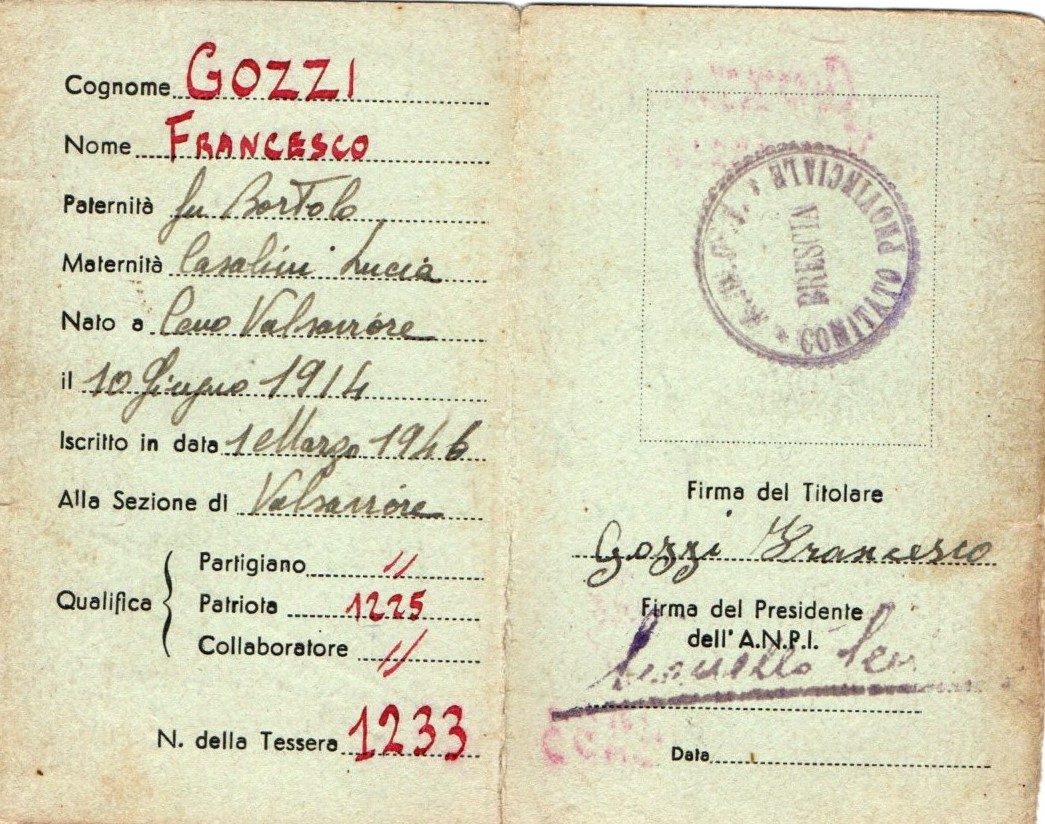 Cognome GOZZI
Nome FRANCESCO
Paternità fu Bortolo
Maternità Casalini Lucia
Nato a Cevo Valsaviore
il 10 Giugno 1914
Iscritto in data 1 Marzo 1946
Alla Sezione di Valsaviore
Qualifica
Partigiano //
Patriota 1225
Collaboratore //
N. della Tessera 1233
A.N.P.I. * COMITATO PROVINCIALE *
BRESCIA
Firma del Titolare
Gozzi Francesco
Firma del Presidente
dell' A.N.P.I.
Data